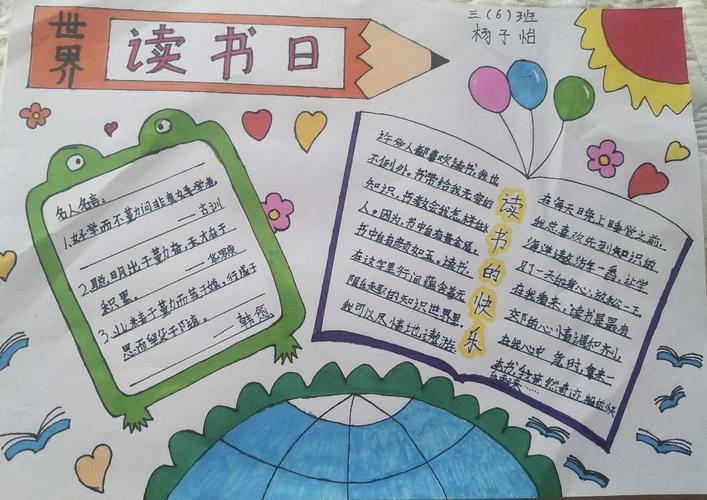 世界
读书日
三(6)班
杨子怡
名人名言:
1.好学而不勤问非真好学者。
——古训
2.聪明出于勤奋,天才在于
积累。
——华罗庚
3.业精于勤而荒于嬉,行成于
思而毁于随。
——韩愈
读书的快乐
许多人都喜欢读书,我也
不例外。书带给我无穷的
知识,书教会我怎样做
人。因为,书中自有黄金屋,
书中自有颜如玉。读书,
在这字里行间蕴含着无
限的知识世界里,
我可以尽情地遨游
在每天晚上睡觉之前,
我总喜欢先到知识的
海洋遨游一番,让学
了一天的身心放松一下。
在我看来,读书是最有
的心情调和
在我心中 急时,拿来一
本书